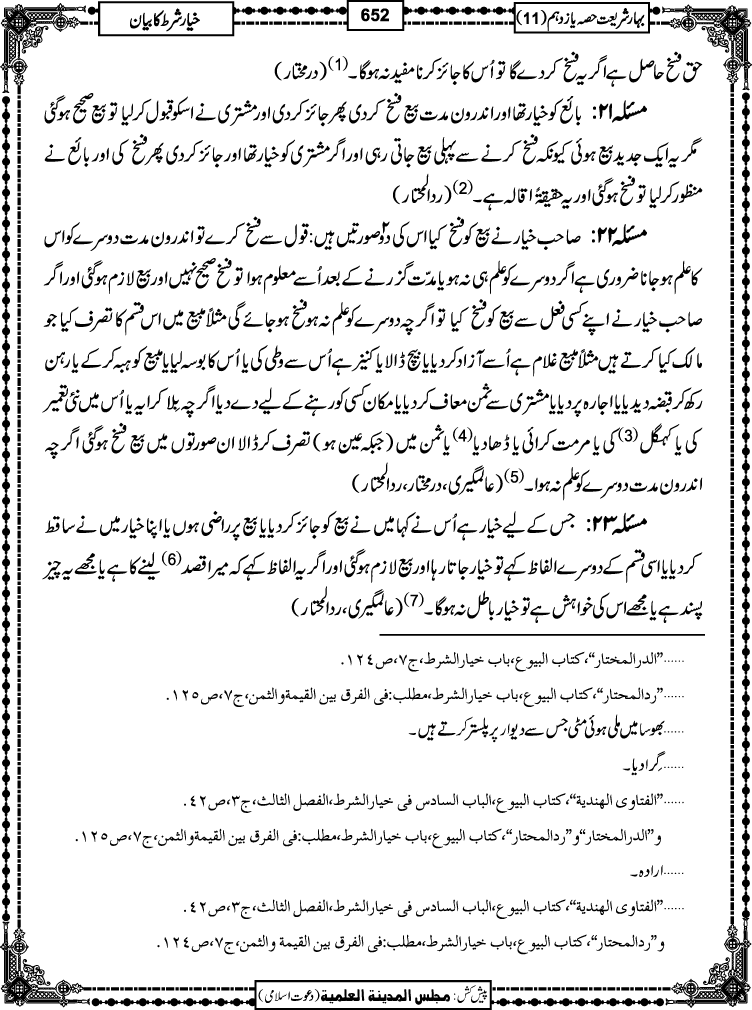 بہار شریعت حصہ یازدہم (11)
652
خیار شرط کا بیان
حق فسخ حاصل ہے اگر یہ فسخ کردے گا تو اُس کا جائز کرنا مفید نہ ہوگا۔(1) (درمختار)
مسئلہ ۲۱: بائع کو خیار تھا اور اندرون مدت بیع فسخ کردی پھر جائز کردی اور مشتری نے اسکو قبول کرلیا تو بیع صحیح ہوگئی
مگر یہ ایک جدید بیع ہوئی کیونکہ فسخ کرنے سے پہلی بیع جاتی رہی اور اگر مشتری کو خیار تھا اور جائز کردی پھر فسخ کی اور بائع نے
منظور کرلیا تو فسخ ہوگئی اور یہ حقیقۃً اقالہ ہے۔(2) (ردالمحتار)
مسئلہ ۲۲: صاحب خیار نے بیع کو فسخ کیا اس کی دو۲ صورتیں ہیں: قول سے فسخ کرے تو اندرون مدت دوسرے کو اس
کا علم ہوجانا ضروری ہے اگر دوسرے کو علم ہی نہ ہو یا مدّت گزرنے کے بعد اُسے معلوم ہوا تو فسخ صحیح نہیں اور بیع لازم ہوگئی اور اگر
صاحب خیار نے اپنے کسی فعل سے بیع کو فسخ کیا تو اگرچہ دوسرے کو علم نہ ہو فسخ ہوجائے گی مثلاً مبیع میں اس قسم کا تصرف کیا جو
مالک کیا کرتے ہیں مثلاً مبیع غلام ہے اُسے آزاد کردیا یا بیچ ڈالا یا کنیز ہے اُس سے وطی کی یا اُس کا بوسہ لیا یا مبیع کو ہبہ کرکے یا رہن
رکھ کر قبضہ دیدیا یا اجارہ پر دیا یا مشتری سے ثمن معاف کردیا یا مکان کسی کو رہنے کے لیے دے دیا اگرچہ بِلا کرایہ یا اُس میں نئی تعمیر
کی یا کہگل(3) کی یا مرمت کرائی یا ڈھا دیا(4) یا ثمن میں (جبکہ عین ہو) تصرف کرڈالا ان صورتوں میں بیع فسخ ہوگئی اگرچہ
اندرون مدت دوسرے کو علم نہ ہوا۔(5) (عالمگیری، درمختار، ردالمحتار)
مسئلہ ۲۳: جس کے لیے خیار ہے اُس نے کہا میں نے بیع کو جائز کردیا یا بیع پر راضی ہوں یا اپنا خیار میں نے ساقط
کردیا یا اسی قسم کے دوسرے الفاظ کہے تو خیار جاتا رہا اور بیع لازم ہوگئی اور اگر یہ الفاظ کہے کہ میرا قصد(6) لینے کا ہے یا مجھے یہ چیز
پسند ہے یا مجھے اس کی خواہش ہے تو خیار باطل نہ ہوگا۔(7) (عالمگیری، ردالمحتار)
......”الدرالمختار“،کتاب البیوع،باب خیارالشرط،ج۷،ص۱۲٤.
......”ردالمحتار“،کتاب البیوع،باب خیارالشرط،مطلب:فی الفرق بین القیمةوالثمن،ج۷،ص۱۲٥.
......بھوسا میں ملی ہوئی مٹی جس سے دیوار پر پلستر کرتے ہیں۔
......گِرا دیا۔
......”الفتاوی الھندیة“،کتاب البیوع،الباب السادس فی خیارالشرط،الفصل الثالث،ج۳،ص٤۲.
و”الدرالمختار“و”ردالمحتار“،کتاب البیوع،باب خیارالشرط،مطلب:فی الفرق بین القیمةوالثمن،ج۷،ص۱۲٥.
......ارادہ۔
......”الفتاوی الھندیة“،کتاب البیوع،الباب السادس فی خیارالشرط،الفصل الثالث،ج۳،ص٤۲.
و”ردالمحتار“،کتاب البیوع،باب خیارالشرط،مطلب:فی الفرق بین القیمة والثمن،ج۷،ص۱۲٤.
پیش کش: مجلس المدینة العلمیة (دعوت اسلامی)